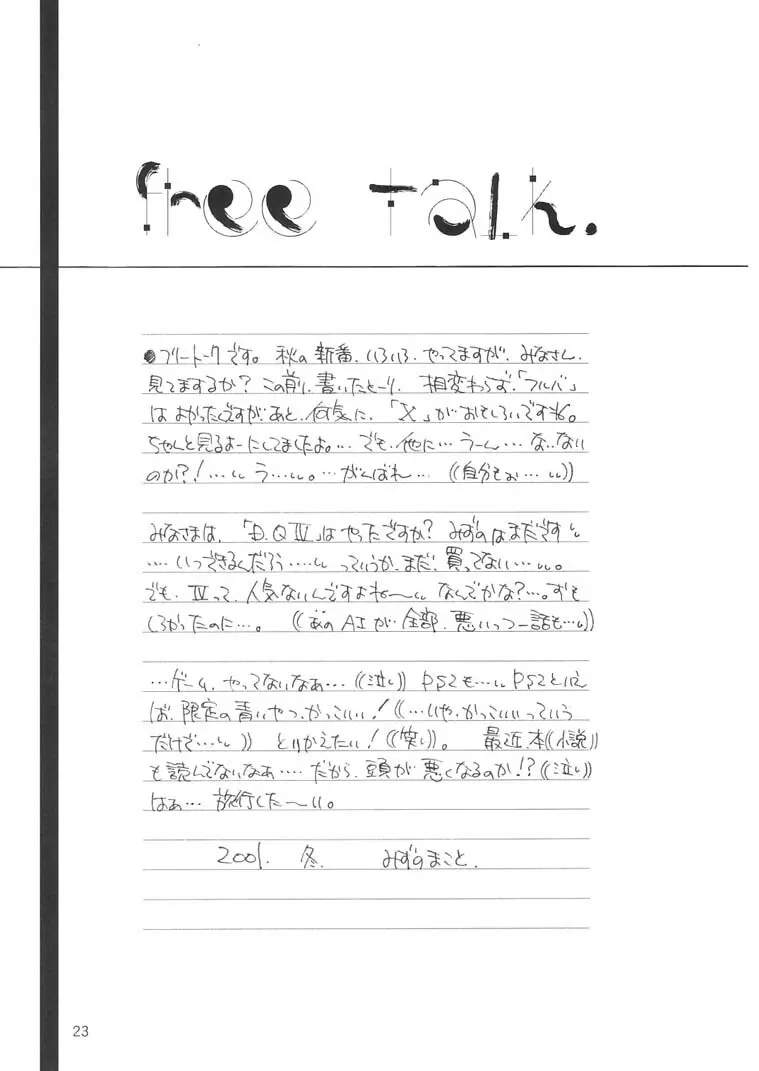 free Talk.
●フリートークです。秋の新番、いろいろ、やってますが、みなさん、
見てますか？この前に書いたとーり、相変わらず、「フルバ」
はよかったですが、あと、何気に、「X」がおもしろいですね。
ちゃんと見るよーにしてましたよ。… でも、他に… うーん… な、ない
のか?!…いう…い。… がんばれ… ((自分もぉ…い))
みなさまは、「D.Q IV」はやったですか？みずのはまだですい
…いつできるんだろう……いっていうか、まだ、買ってない…い。
でも、IVって、人気ないんですよね〜い なんでかな？…。おも
しろかったのに…。((あのAIが全部、悪いっつー話も…い))
…ゲーム、やってないなぁ…((泣い)) PS2も…い PS2といえ
ば、限定の青いやつ、かっこいい！((…いや、かっこいいっていう
だけど…い)) とりかえたい！((笑い))。最近、本((小説))
も読んでないなぁ…. だから、頭が悪くなるのか!?((泣い))
はぁ… 旅行した〜い。
2001. 冬. みずのまこと.
23